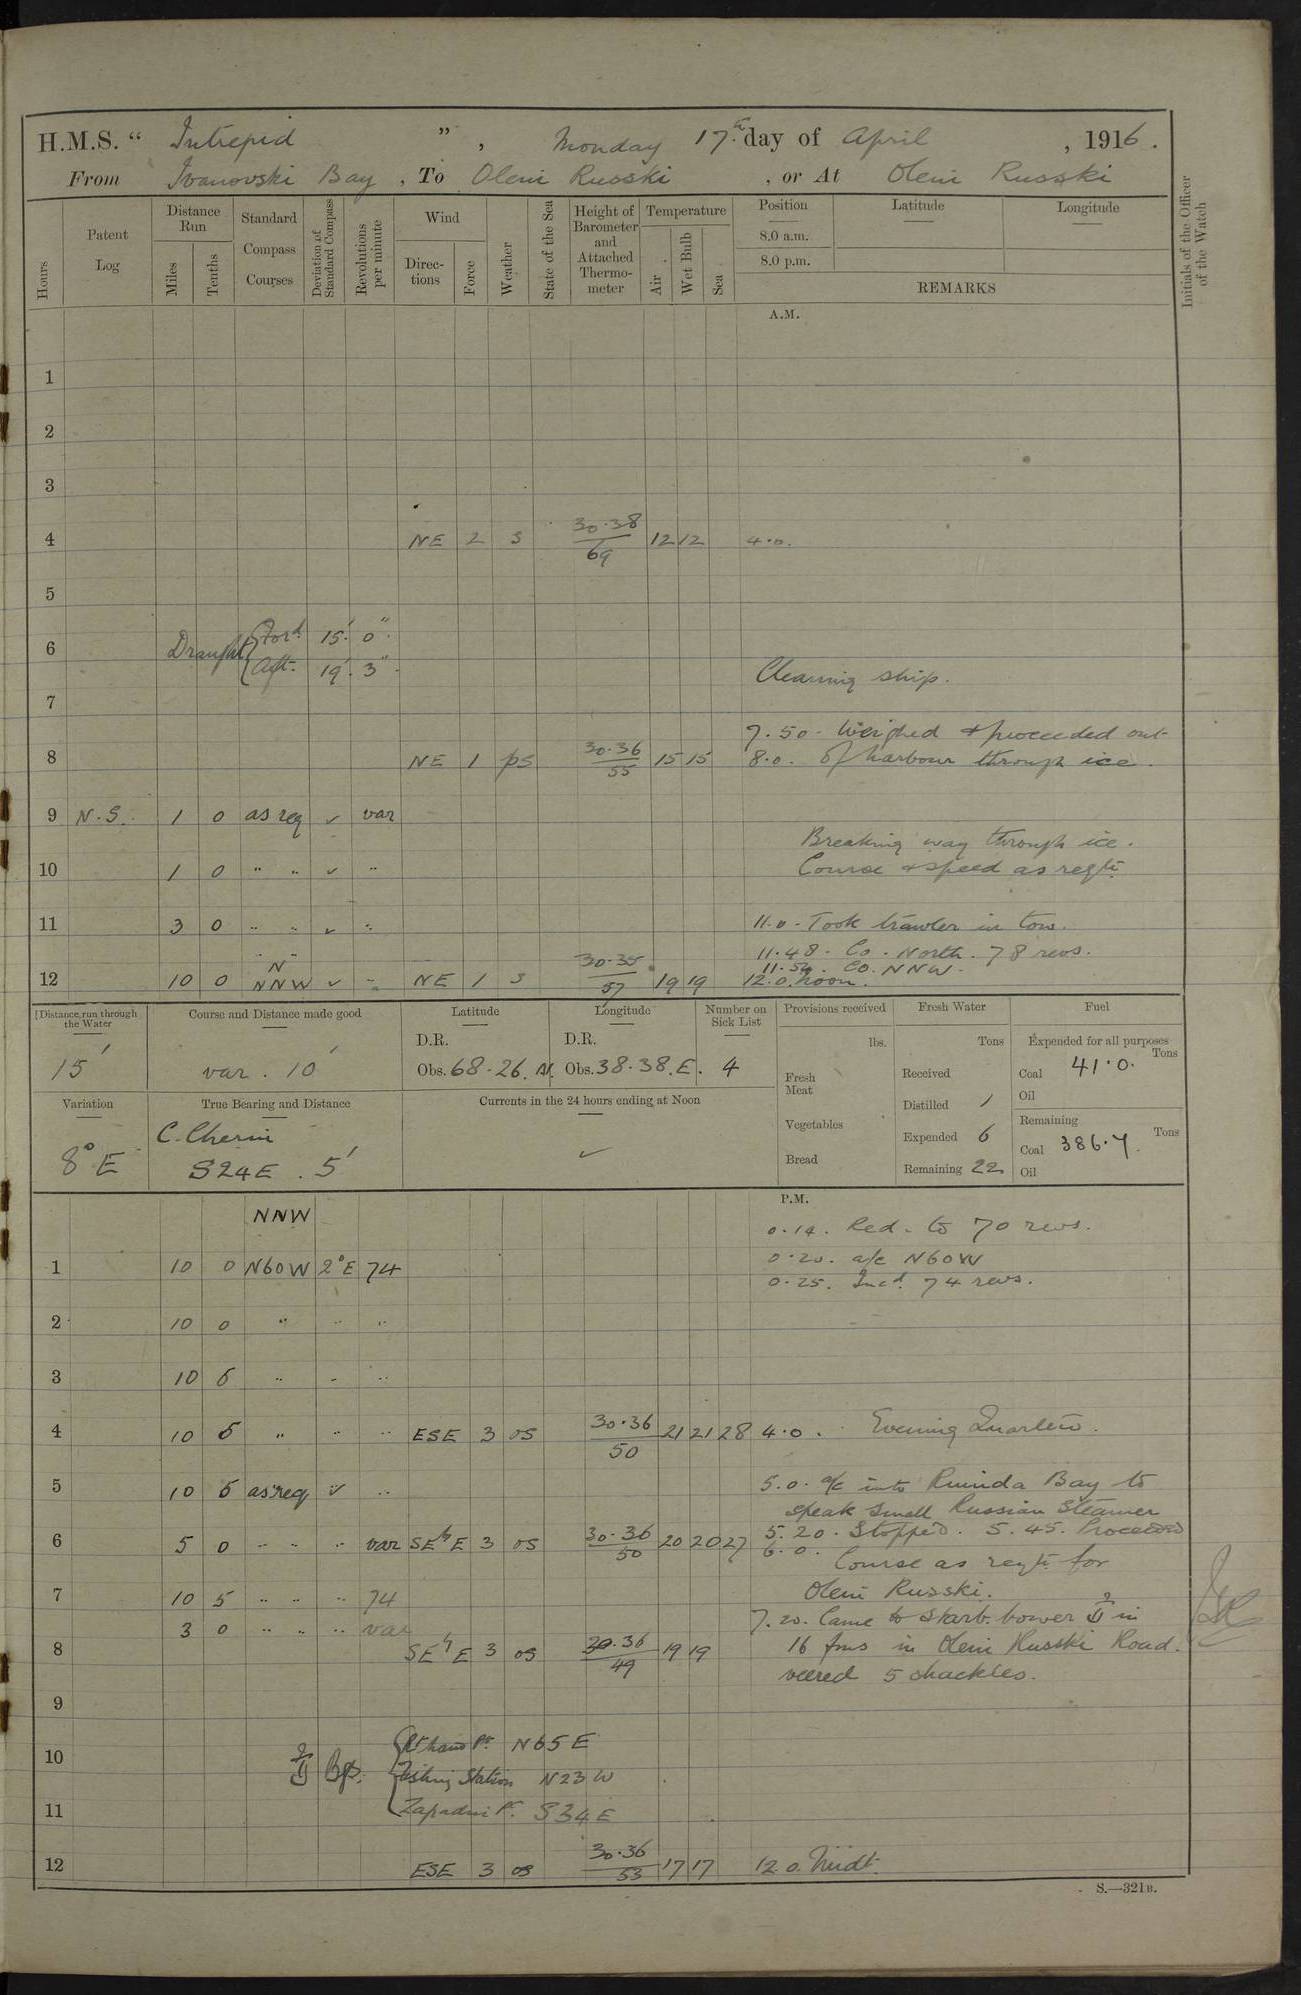 H.M.S. “ Intrepid ”, Monday 17th day of April, 1916.
From Ivanovski Bay, To Oleni Russki, or At Oleni Russki
Hours
Patent Log
Distance Run
Miles
Tenths
Standard Compass Courses
Deviation of Standard Compass
Revolutions per minute
Wind
Directions
Force
Weather
State of the Sea
Height of Barometer and Attached Thermometer
Temperature
Air
Wet Bulb
Sea
Position
8.0 a.m.
8.0 p.m.
Latitude
Longitude
REMARKS
Initials of the Officer of the Watch
A.M.
1
2
3
4 NE 2 s 30.38 69 12 12 4.0.
5
6 Draught { Ford. 15' 0"
Aft. 19' 3"
Cleaning ship.
7
7.50. Weighed & proceeded out
8 NE 1 ps 30.36 55 15 15 8.0. of harbour through ice.
9 N.S. 1 0 as req ✓ var
Breaking way through ice.
10 1 0 " " ✓ " Course & speed as reqte.
11 3 0 " " ✓ " 11.0 - Took trawler in tow.
11.48. Co. North. 78 revs.
N 11.54. Co. NNW.
12 10 0 NNW ✓ " NE 1 s 30.35 57 19 19 12.0. noon.
Distance run through the Water
15'
Course and Distance made good
var. 10'
Latitude
D.R.
Obs. 68.26.N.
Longitude
D.R.
Obs. 38.38.E.
Number on Sick List
4
Provisions received
lbs.
Fresh Meat
Vegetables
Bread
Fresh Water
Tons
Received
Distilled 1
Expended 6
Remaining 22
Fuel
Expended for all purposes
Tons
Coal 41.0.
Oil
Remaining
Tons
Coal 386.7.
Oil
Variation
8° E
True Bearing and Distance
C. Cherni
S24E . 5'
Currents in the 24 hours ending at Noon
✓
P.M.
NNW 0.14. Red. to 70 revs.
0.20. a/c N60W
1 10 0 N60W 2°E 74 0.25. Incd. 74 revs.
2 10 0 " " "
3 10 5 " " "
4 10 5 " " " ESE 3 os 30.36 50 21 21 28 4.0. Evening Quarters.
5 10 5 as req ✓ " 5.0. a/c into Ruinda Bay to
speak small Russian Steamer
5.20. Stopped. 5.45. Proceeded
6 5 0 " " " var SE by E 3 os 30.36 50 20 20 27 6.0. Course as reqte. for
7 10 5 " " " 74 Oleni Russki.
3 0 " " " var 7.20. Came to starb. bower in
8 SE by E 3 os 30.36 49 19 19 16 fms in Oleni Russki Road.
veered 5 shackles.
9
10 Bgs. { Rt. hand Pt. N65E
Fishing Station N23W
11 Zapadni Pt. S34E
12 ESE 3 os 30.36 53 17 17 12.0. Midt.
S.—321B.